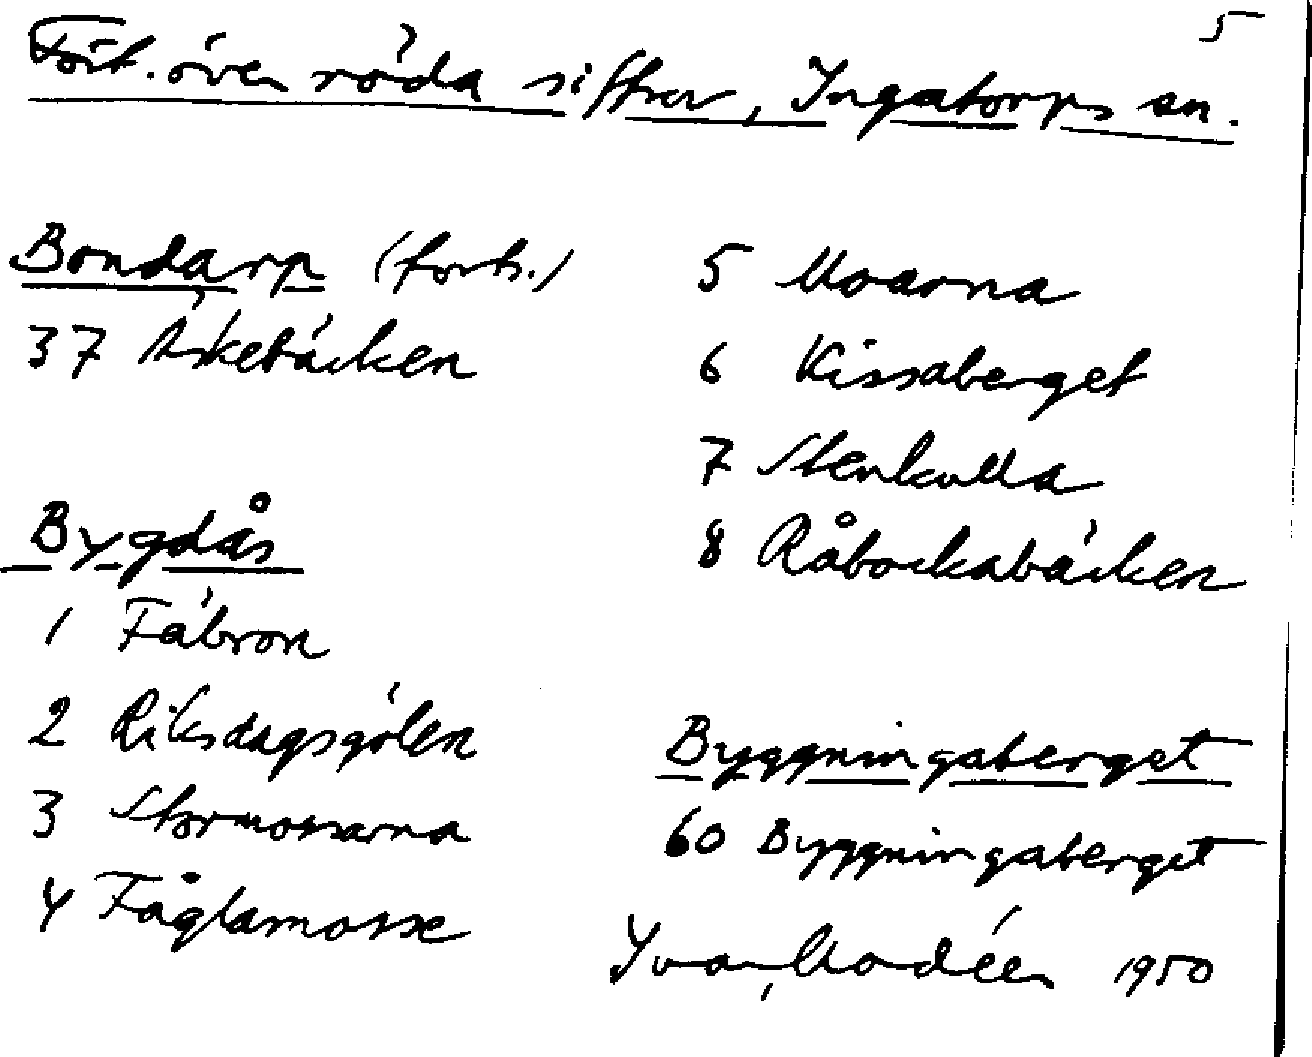 5
Fört. över röda siffror, Ingatorps sn.
Bondarp (forts.)
37 Äskebäcken
Bygdås
1 Fäbron
2 Riksdagsgölen
3 Stormossarna
4 Fåglamosse
5 Moarna
6 Kissaberget
7 Stenkulla
8 Råbockabäcken
Byggningaberget
60 Byggningaberget
Ivar Modéer 1950